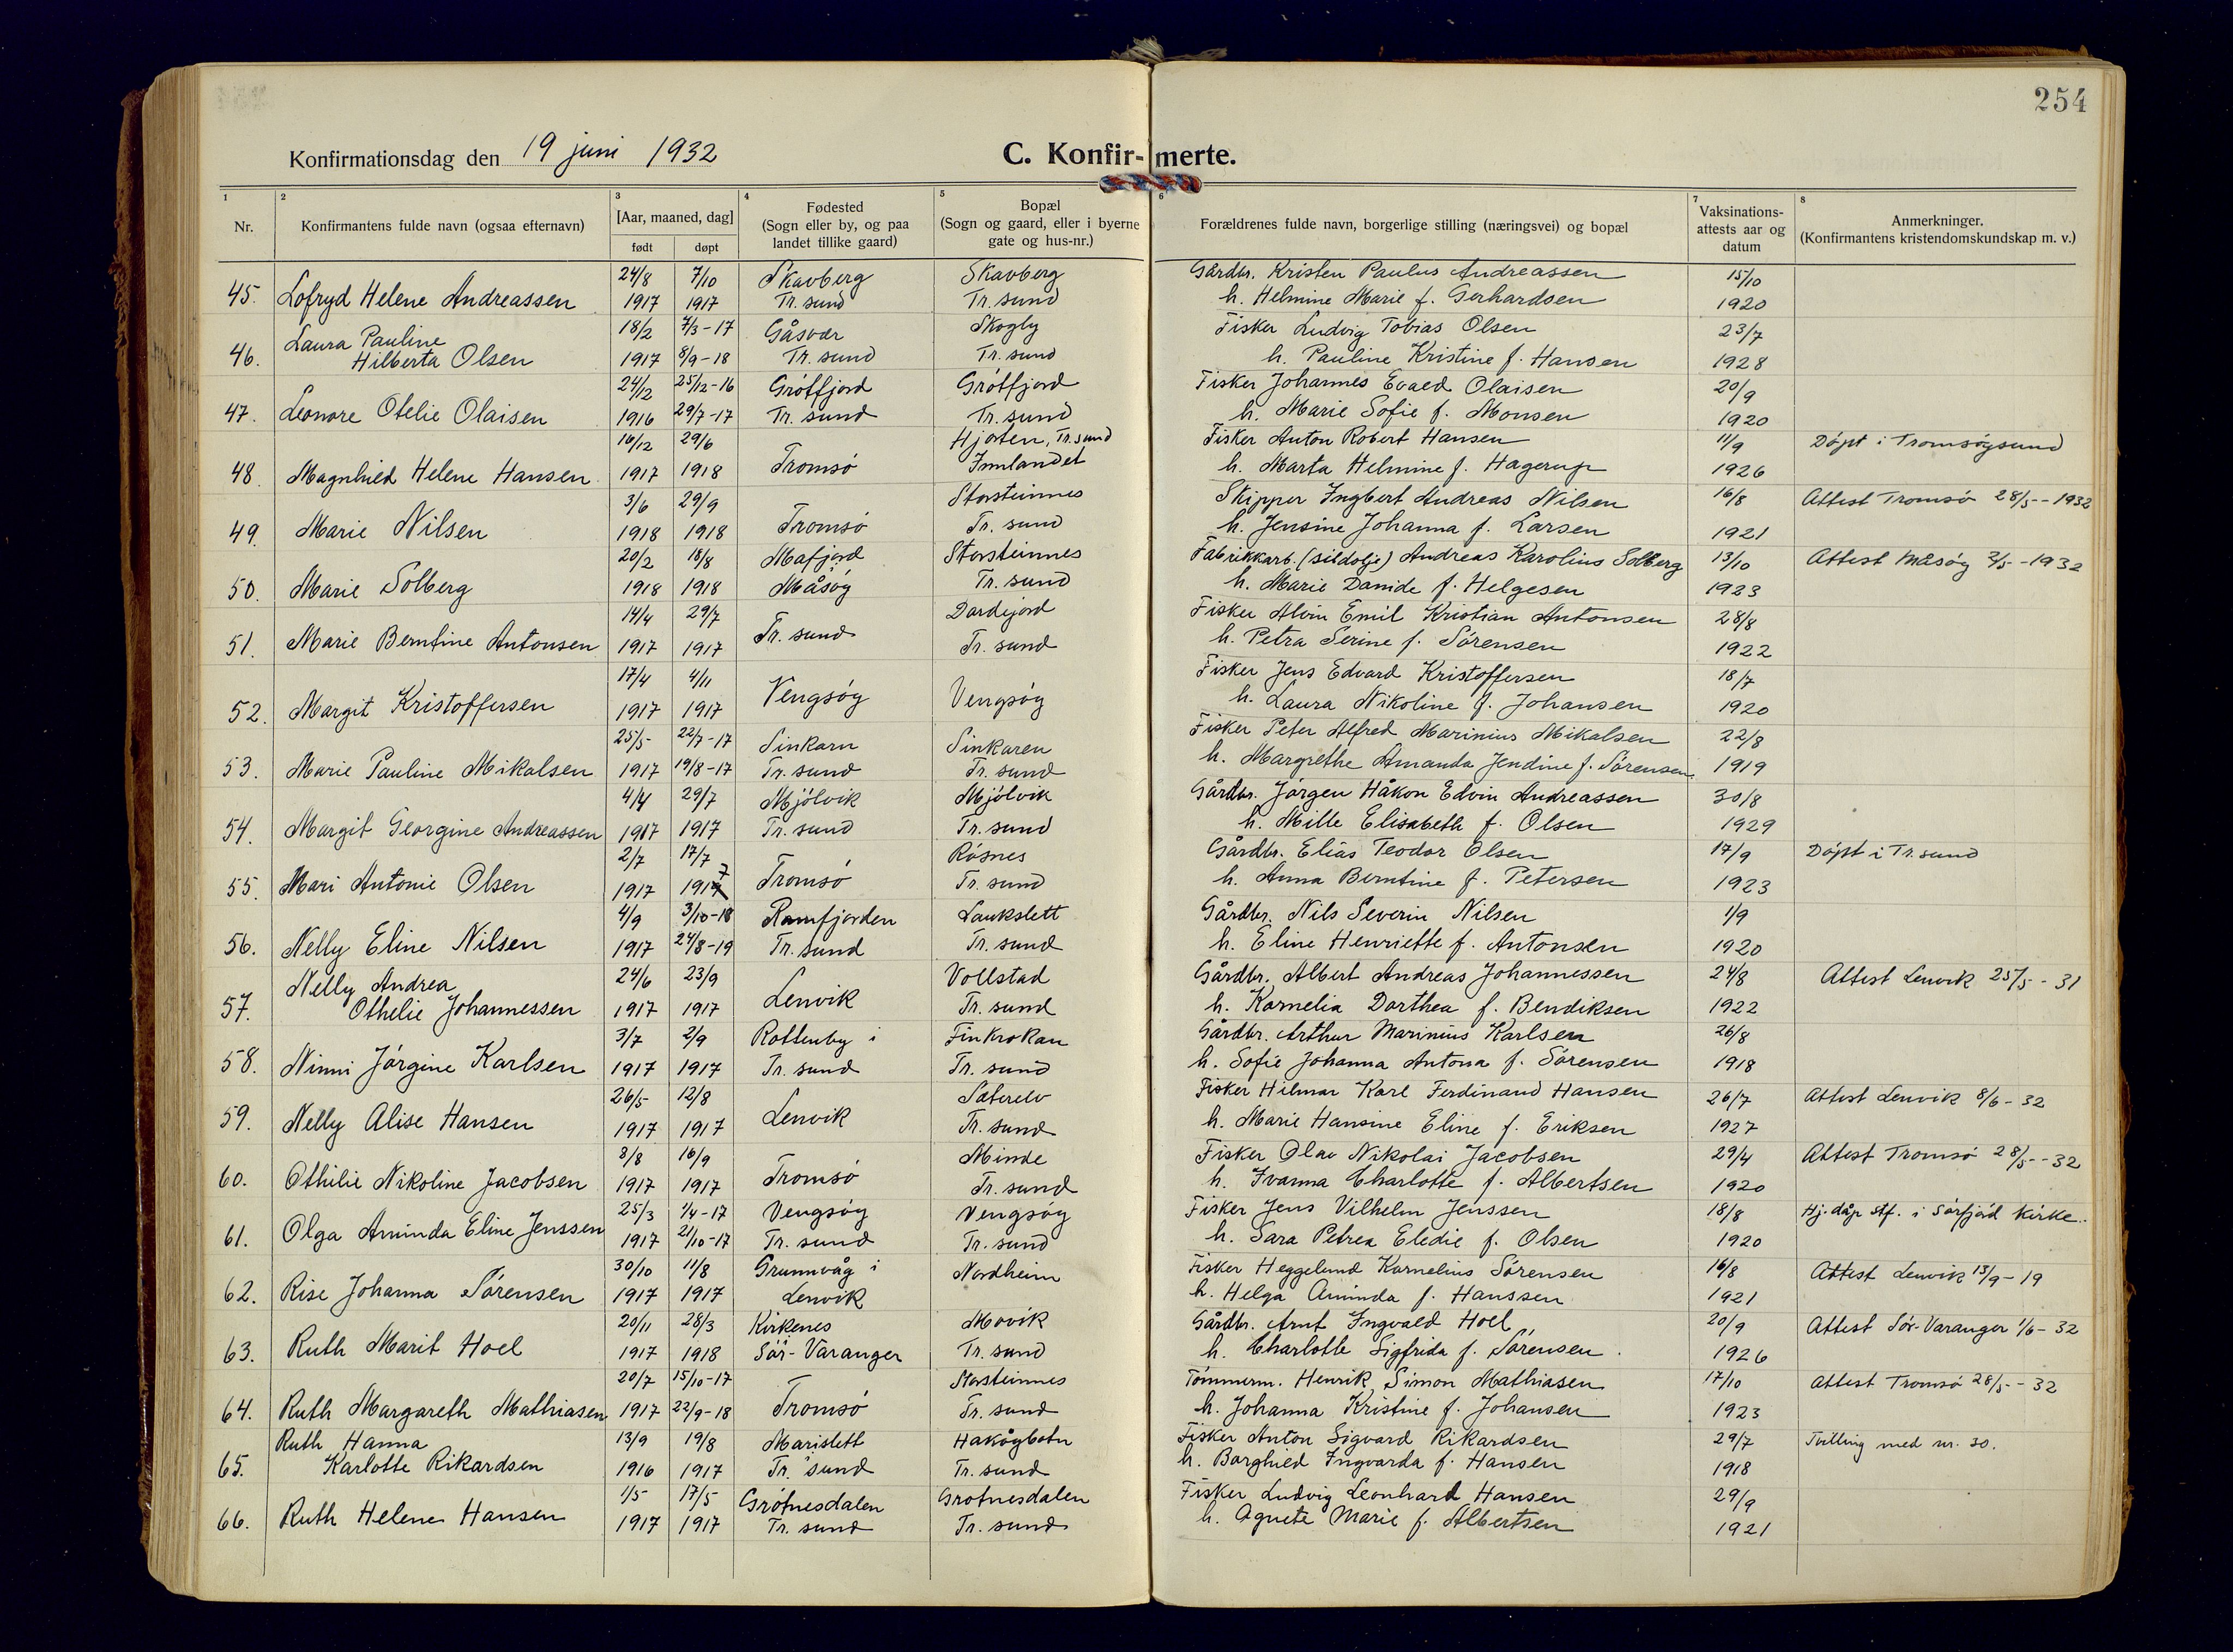 254
Konfirmationsdag den 19 juni 1932
C. Konfir- merte.
1 2 3 4 5 6 7 8
Nr. Konfirmantens fulde navn (ogsaa efternavn) [Aar, maaned, dag] født døpt Fødested (Sogn eller by, og paa landet tillike gaard) Bopæl (Sogn og gaard, eller i byerne gate og hus-nr.) Forældrenes fulde navn, borgerlige stilling (næringsvei) og bopæl Vaksinations-attests aar og datum Anmerkninger. (Konfirmantens kristendomskundskap m. v.)
24/8 7/10 Skavberg Skavberg Gårdbr. Kristen Paulus Andreassen 15/10
45. Lofryd Helene Andreassen 1917 1917 Tr. sund Tr. sund h. Helmine Marie f. Gerhardsen 1920
Laura Pauline 18/2 7/3-17 Gåsvær Skogly Fisker Ludvig Tobias Olsen 23/7
46. Hilberta Olsen 1917 8/9-18 Tr. sund Tr. sund h. Pauline Kristine f. Hansen 1928
24/12 25/12-16 Grötfjord Grötfjord Fisker Johannes Evald Olaisen 20/9
47. Leonore Otelie Olaisen 1916 29/7-17 Tr. sund Tr. sund h. Marie Sofie f. Monsen 1920
16/12 29/6 Hjorten, Tr. sund Fisker Anton Robert Hansen 11/9 Döpt i Tromsöysund
48. Magnhild Helene Hansen 1917 1918 Tromsö Innlandet h. Marta Helmine f. Hagerup 1926
3/6 29/9 Storsteinnes Skipper Ingbert Andreas Nilsen 16/8 Attest Tromsö 28/5--1932
49. Marie Nilsen 1918 1918 Tromsö Tr. sund h. Jensine Johanna f. Larsen 1921
20/2 18/8 Mafjord Storsteinnes Fabrikkarb. (sildolje) Andreas Karolius Solberg 13/10 Attest Måsöy 2/5--1932
50. Marie Solberg 1918 1918 Måsöy Tr. sund h. Marie Danide f. Helgesen 1923
14/4 29/7 Tr. sund Dardijord Fisker Alvin Emil Kristian Antonsen 28/8
51. Marie Berntine Antonsen 1917 1917 Tr. sund h. Petra Serine f. Sörensen 1922
17/4 4/11 Vengsöy Vengsöy Fisker Jens Edvard Kristoffersen 18/7
52. Margit Kristoffersen 1917 1917 h. Laura Nikoline f. Johansen 1920
25/5- 22/7-17 Sinkarn Sinkaren Fisker Peter Alfred Marinius Mikalsen 22/8
53. Marie Pauline Mikalsen 1917 19/8-17 Tr. sund Tr. sund h. Margrethe Amanda Jendine f. Sörensen 1919
4/4 29/7 Mjölvik Mjölvik Gårdbr. Jörgen Håkon Edvin Andreassen 30/8
54. Margit Georgine Andreassen 1917 1917 Tr. sund Tr. sund h. Mille Elisabeth f. Olsen 1929
2/7 17/7 Rösnes Gårdbr. Elias Teodor Olsen 17/9 Döpt i Tr. sund
55. Mari Antonie Olsen 1917 1917 Tromsö Tr. sund h. Anna Berntine f. Petersen 1923
4/9 3/10-18 Ramfjorden Laukslett Gårdbr. Nils Severin Nilsen 1/9
56. Nelly Eline Nilsen 1917 24/8-19 Tr. sund Tr. sund h. Eline Henriette f. Antonsen 1920
Nelly Andrea 24/6 23/9 Lenvik Vollstad Gårdbr. Albert Andreas Johannessen 24/8 Attest Lenvik 25/5-31
57. Othelie Johannessen 1917 1917 Tr. sund h. Kornelia Dorthea f. Bendiksen 1922
3/7 2/9 Rottenby i Finkrokan Gårdbr. Arthur Marinius Karlsen 26/8
58. Ninni Jörgine Karlsen 1917 1917 Tr. sund Tr. sund h. Sofie Johanna Antona f. Sörensen 1918
26/5- 12/8 Lenvik Säterelv Fisker Hilmar Karl Ferdinand Hansen 26/7 Attest Lenvik 8/6-32
59. Nelly Alise Hansen 1917 1917 Tr. sund h. Marie Hansine Eline f. Eriksen 1927
8/8 16/9 Minde Fisker Olav Nikolai Jacobsen 29/4 Attest Tromsö 28/5--32
60. Othilie Nikoline Jacobsen 1917 1917 Tromsö Tr. sund h. Ivanna Charlotte f. Albertsen 1920
25/3 1/4-17 Vengsöy Vengsöy Fisker Jens Vilhelm Jenssen 18/8 Hj. dåp stf. i Sörfjord Kirke.
61. Olga Aminda Eline Jenssen 1917 21/10-17 Tr. sund Tr. sund h. Sara Petrea Eledie f. Olsen 1920
30/10 11/8 Grunnvåg i Nordheim Fisker Heggelund Kornelius Sörensen 16/8 Attest Lenvik 13/9-19
62. Rise Johanna Sörensen 1917 1917 Lenvik h. Helga Aminda f. Hanssen 1921
20/11 28/3 Kirkenes Movik Gårdbr. Arnt Ingvald Hoel 20/9 Attest Sör-Varanger 1/6-32
63. Ruth Marit Hoel 1917 1918 Sör-Varanger Tr. sund h. Charlotte Sigfrida f. Sörensen. 1926
20/7 15/10-17 Storsteinnes Tömmerm. Henrik Simon Mathiasen 17/10 Attest Tromsö 28/5--32
64. Ruth Margareth Mathiasen 1917 22/9-18 Tromsö Tr. sund h. Johanna Kristine f. Johansen 1923
Ruth Hanna 13/9 19/8 Marislett Hakögbotn Fisker Anton Sigvard Rikardsen 29/7 Tvilling med nr. 30.
65. Karlotte Rikardsen 1916 1917 Tr. sund Tr. sund h. Borghild Ingvarda f. Hansen 1918
1/5 17/5 Grötnesdalen Grotnesdalen Fisker Ludvig Leonhard Hansen 29/9
66. Ruth Helene Hansen 1917 1917 Tr. sund Tr. sund h. Agnete Marie f. Albertsen 1921